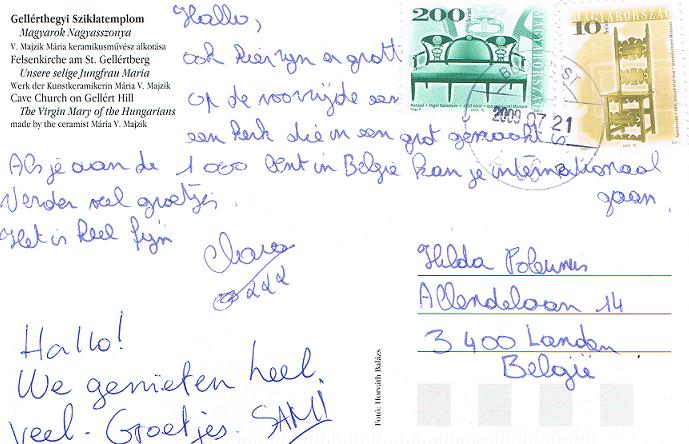 Gellérthegyi Sziklatemplom
Magyarok Nagyasszonya
V. Majzik Mária keramikusművész alkotása
Felsenkirche am St. Gellértberg
Unsere selige Jungfrau Maria
Werk der Kunstkeramikerin Mária V. Majzik
Cave Church on Gellért Hill
The Virgin Mary of the Hungarians
made by the ceramist Mária V. Majzik
Hallo,
ook hier zijn er grott
op de voorzijde een
een kerk die in een grot gemaakt is
Als je aan de 1000 bent in België kan je internationaal
gaan.
Verder veel groetjes.
Het is heel fijn
Hallo!
We genieten heel
veel. Groetjes. SAM!
200
MAGYARORSZÁG
10
MAGYARORSZÁG
2009.07.21
Hilda Poleunis
Allendelaan 14
3400 Landen
België
Fotó: Horváth Balázs